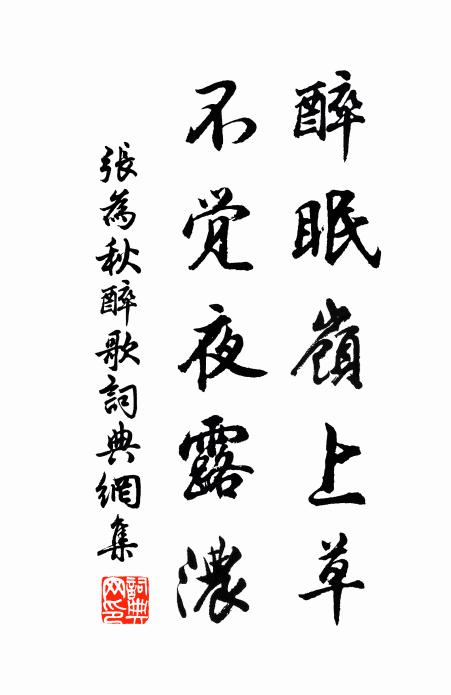 醉眠嶺上草
不觉夜露濃
張為秋醉歌詞典網集
詞典
网印